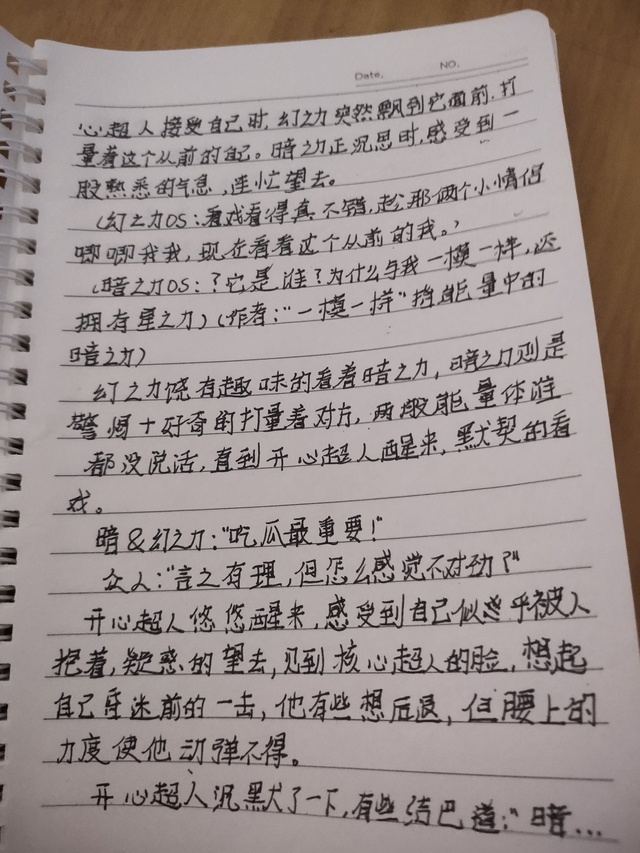 Date.  NO.
心超人接受自己时，幻之力突然飘到它面前，打
量着这个从前的自己。暗之力正沉思时，感受到一
股熟悉的气息，连忙望去。
（幻之力OS：看戏看得真不错，趁那俩个小情侣
唧唧我我，现在看看这个从前的我。）
（暗之力OS：？它是谁？为什么与我一模一样，还
拥有星之力）（作者："一模一样"指能量中的
暗之力）
幻之力饶有趣味的看着暗之力，暗之力则是
警惕十好奇的打量着对方，两股能量体谁
都没说话，直到开心超人醒来，默契的看
戏。
暗&幻之力："吃瓜最重要！"
众人："言之有理，但怎么感觉不对劲？"
开心超人悠悠醒来，感受到自己似乎被人
抱着，疑惑的望去，见到核心超人的脸，想起
自己昏迷前的一击，他有些想后退，但腰上的
力度使他动弹不得。
开心超人沉默了一下，有些结巴道："暗…